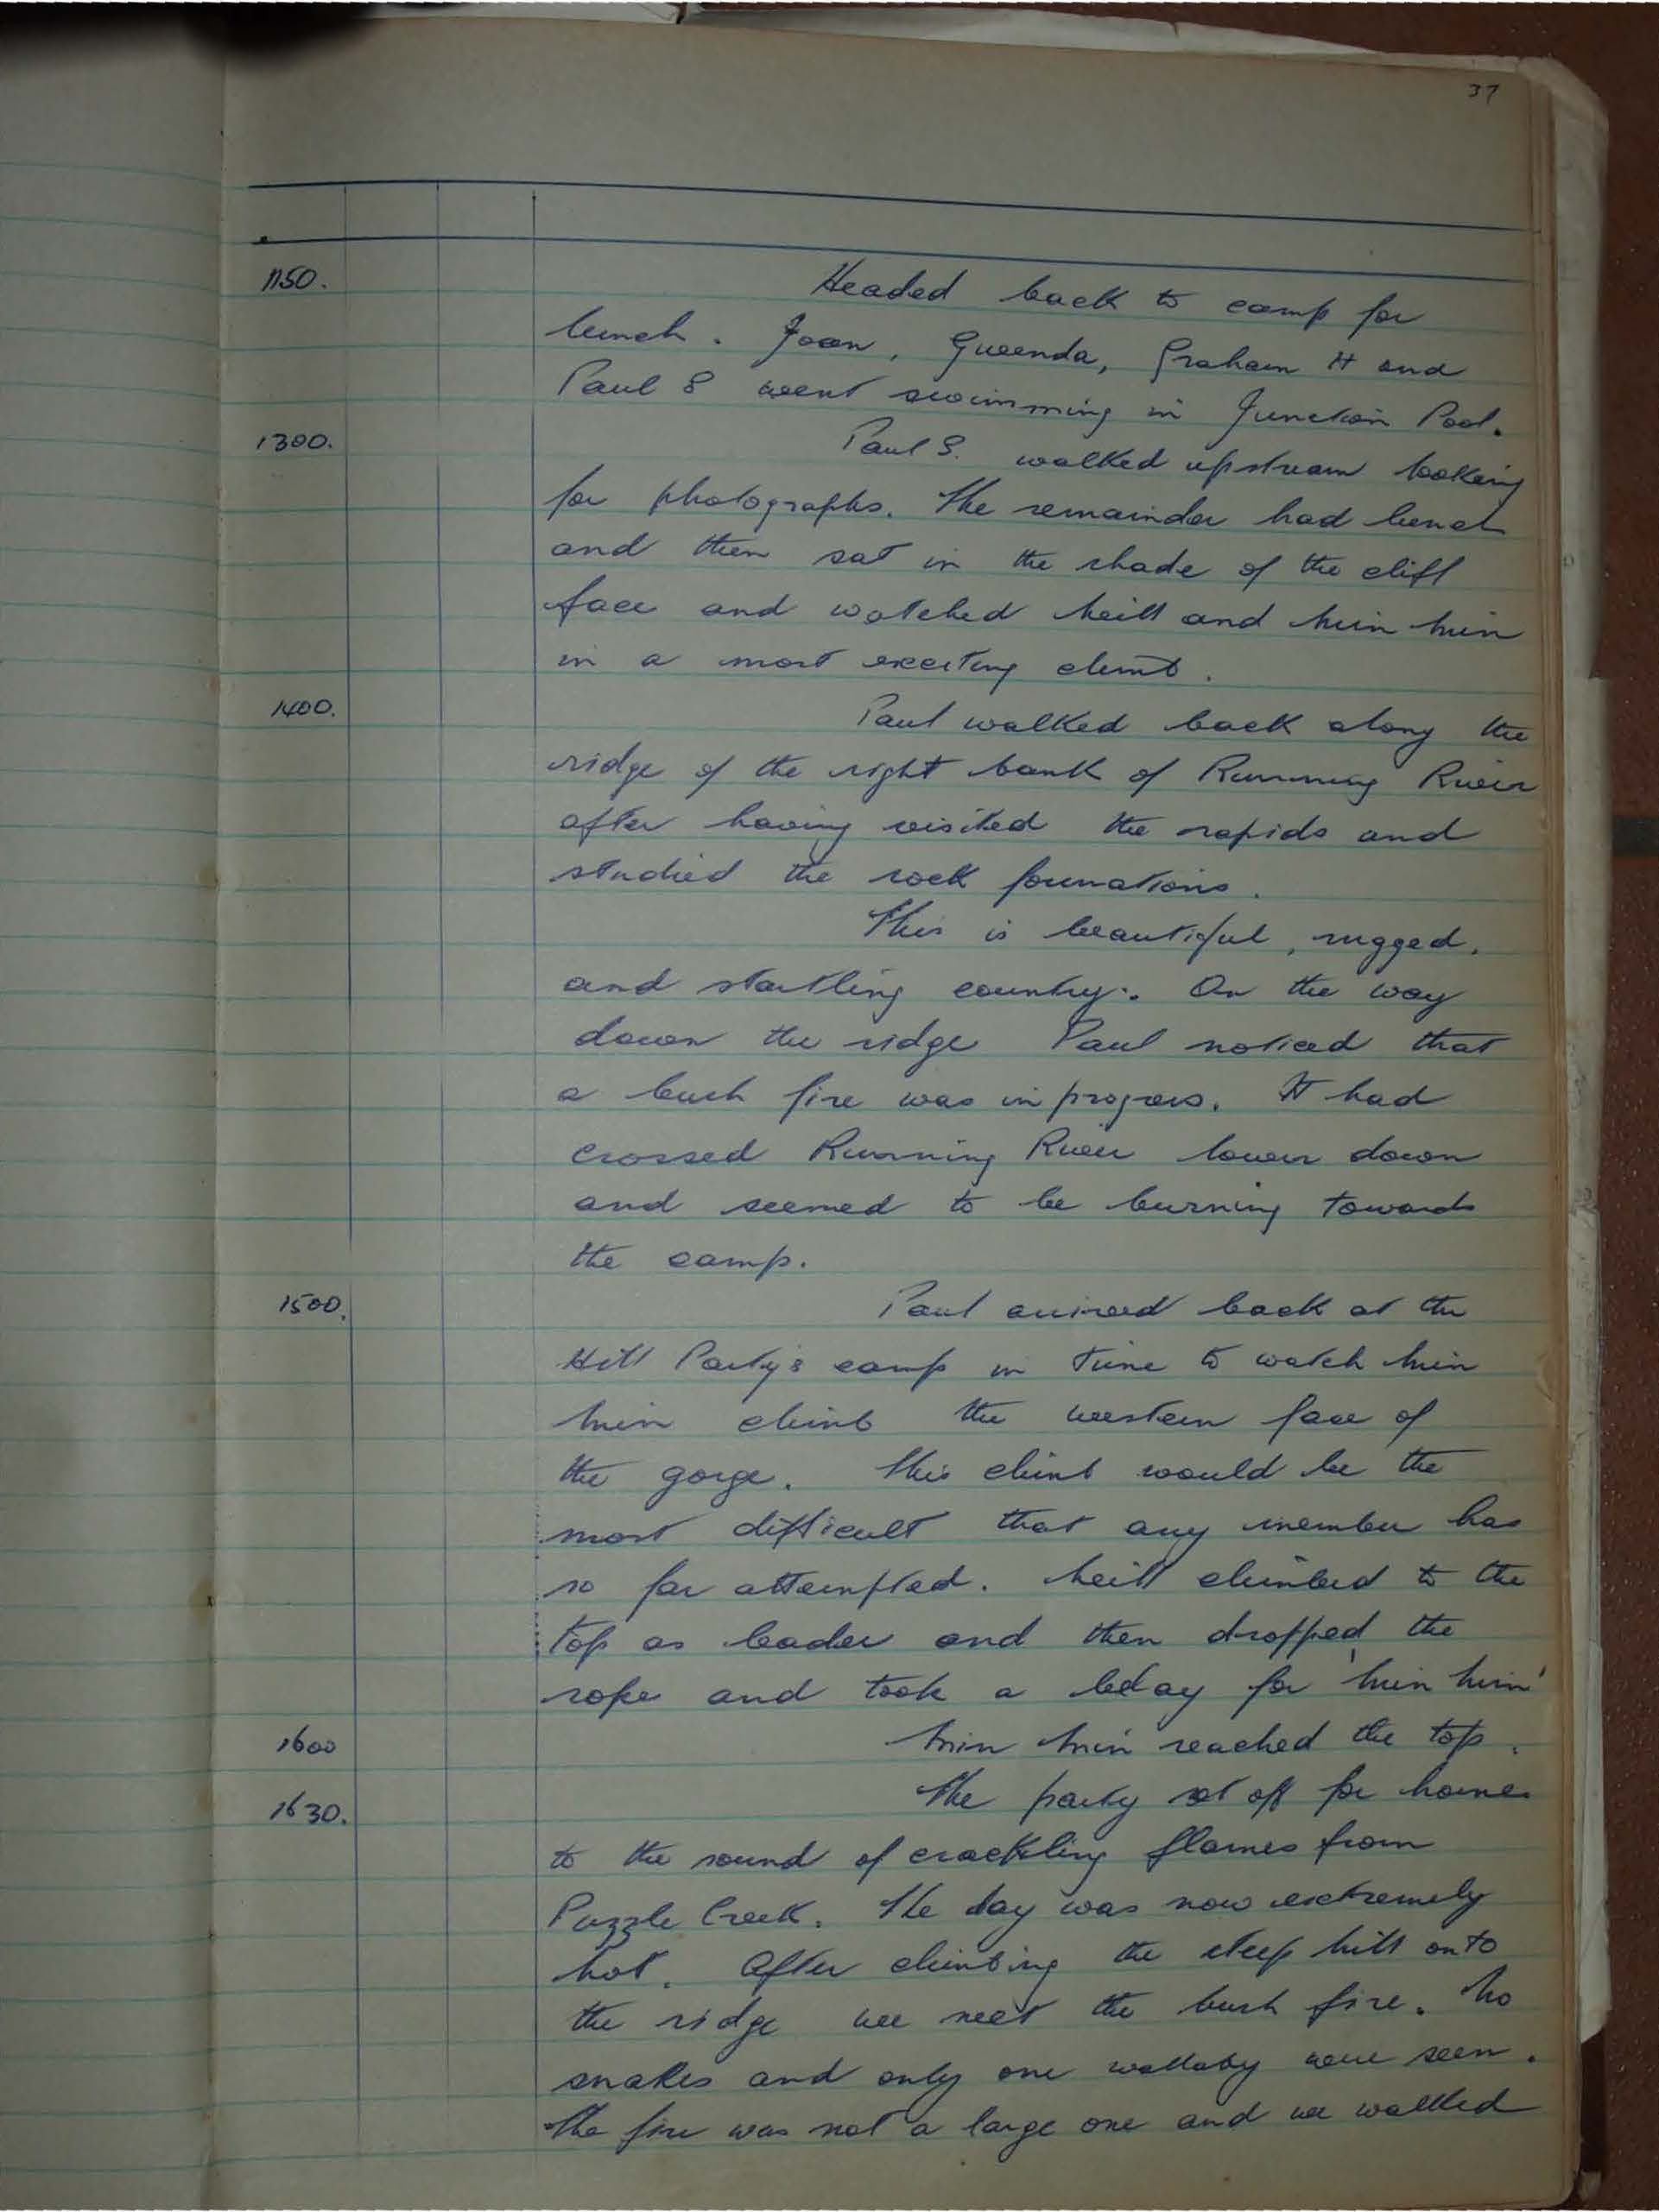 37
1150. Headed back to camp for
lunch. Joan, Gwenda, Graham H and
Paul S went swimming in Junction Pool.
1300. Paul S. walked upstream looking
for photographs. The remainder had lunch
and then sat in the shade of the cliff
face and watched Neill and Min Min
in a most exciting climb.
1400. Paul walked back along the
ridge of the right bank of Running River
after having visited the rapids and
studied the rock formations.
This is beautiful, rugged,
and startling country. On the way
down the ridge Paul noticed that
a bush fire was in progress. It had
crossed Running River lower down
and seemed to be burning towards
the camp.
1500. Paul arrived back at the
Hill Party's camp in time to watch Min
Min climb the western face of
the gorge. This climb would be the
most difficult that any member has
so far attempted. Neill climbed to the
top as leader and then dropped the
rope and took a belay for 'Min Min'
1600 Min Min reached the top.
1630. The party set off for home
to the sound of crackling flames from
Puzzle Creek. The day was now extremely
hot. After climbing the steep hill onto
the ridge we met the bush fire. No
snakes and only one wallaby were seen.
The fire was not a large one and we walked